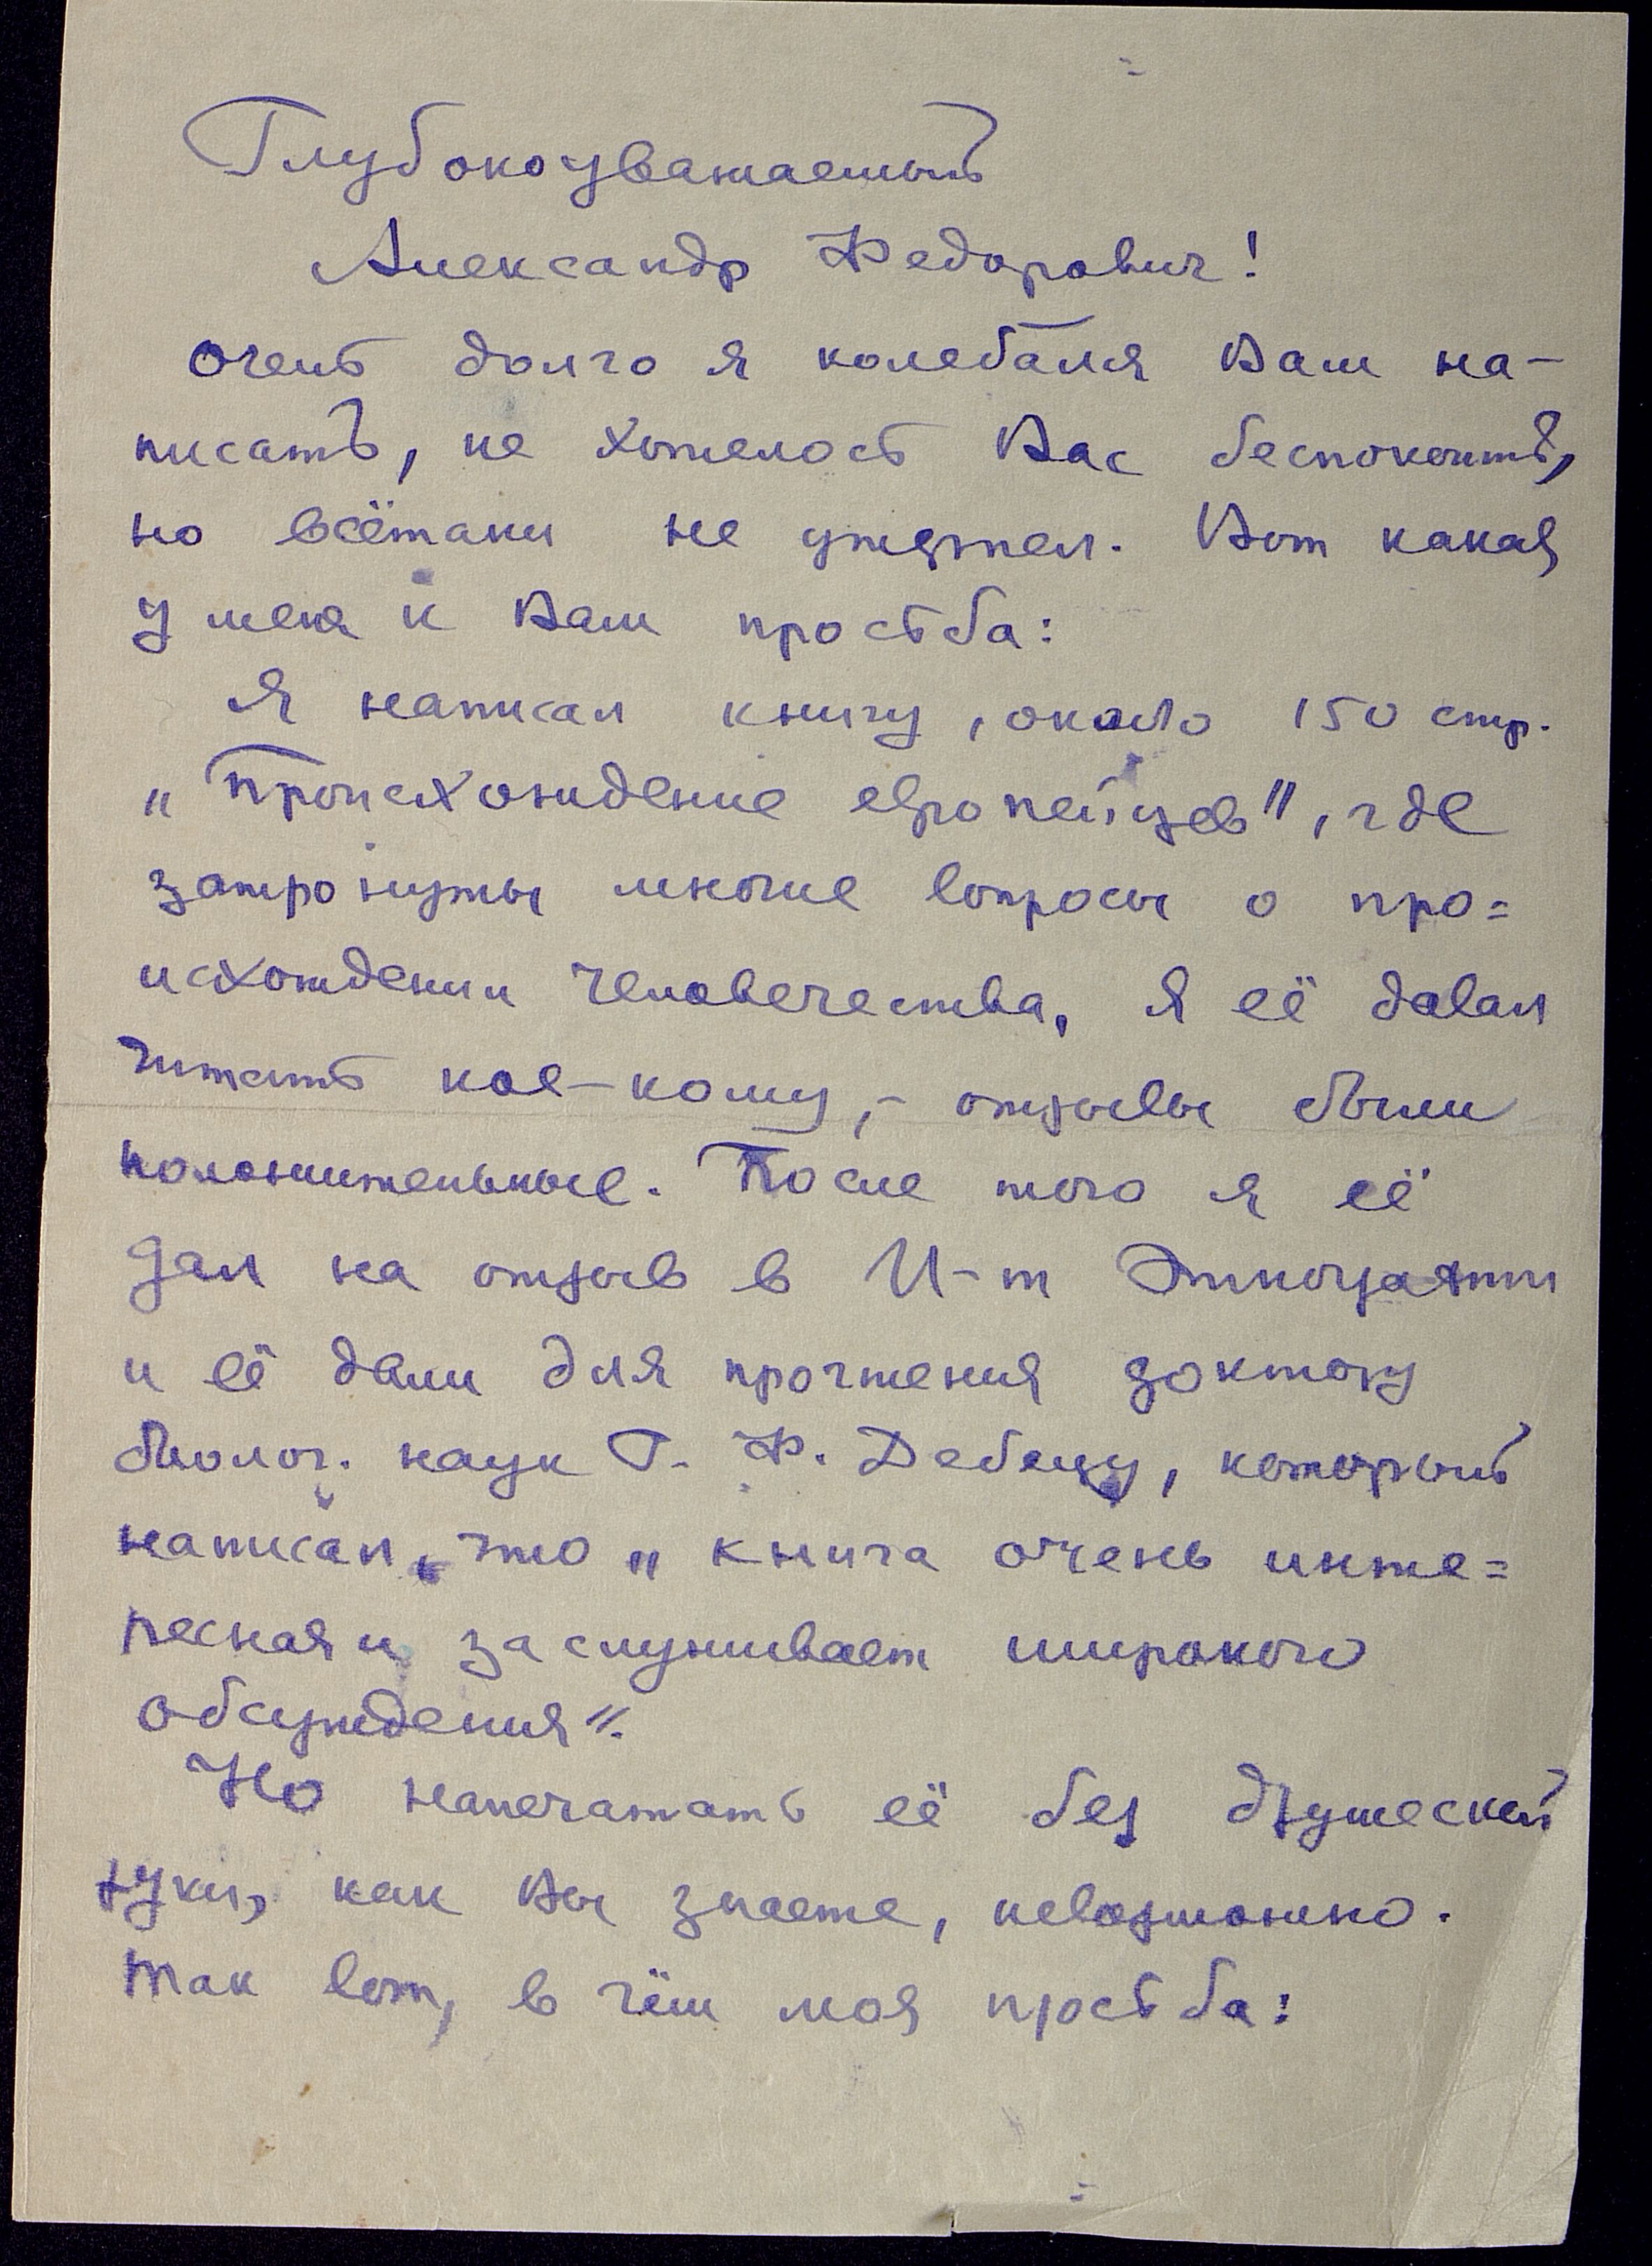 Глубокоуважаемый
Александр Федорович!
Очень долго я колебался Вам на-
писать, не хотелось Вас беспокоить,
но всётаки не утерпел. Вот какая
у меня к Вам просьба:
Я написал книгу, около 150 стр.
„Происхождение европейцев", где
затронуты многие вопросы о про=
исхождении человечества, я её давал
читать кое-кому,- отзывы были
положительные. После того я её
дал на отзыв в И-т Этнографии
и её дали для прочтения доктору
биолог. наук Г. Ф. Дебецу, который
написал, что „книга очень инте=
ресная и заслуживает широкого
обсуждения".
Но напечатать её без дружеской
руки, как Вы знаете, невозможно.
Так вот, в чём моя просьба: